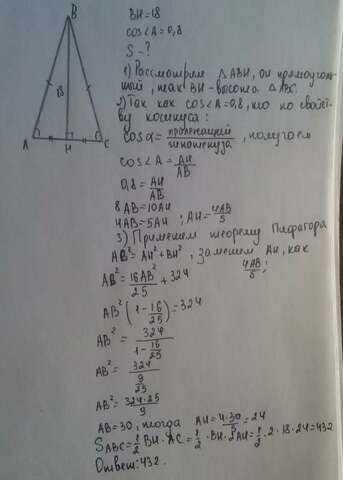 B
18
A
H
C
BH=18
cos∠A=0,8
S-?
1) Рассмотрим △ABH, он прямоуголь-
ный, так BH-высота △ABC.
2) Так как cos∠A=0,8, то по свойст-
ву косинуса:
cosα = прилежащий/гипотенуза, получаем
cos∠A = AH/AB
0,8 = AH/AB
8AB=10AH
4AB=5AH ; AH=4AB/5
3) Применем теорему Пифагора
AB²=AH²+BH², заменем AH, как
4AB/5;
AB²=16AB²/25+324
AB²(1-16/25)=324
AB²=324/(1-16/25)
AB²=324/(9/25)
AB²=324·25/9
AB=30, тогда AH=4·30/5=24
SABC=1/2BH·AC=1/2·BH·2AH=1/2·2·18·24=432
Ответ:432.